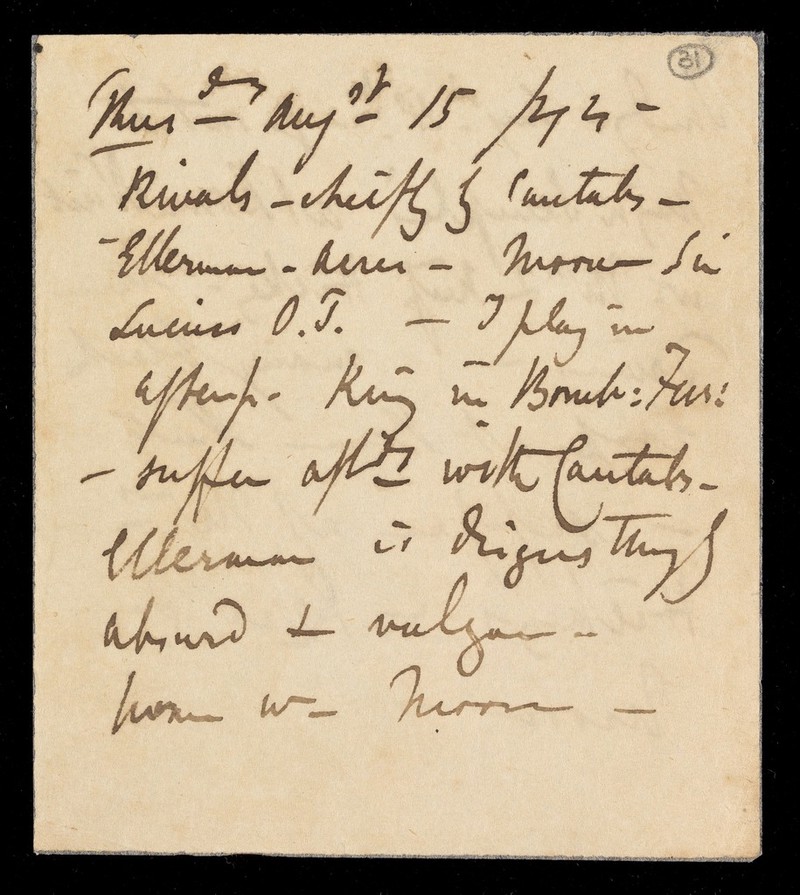 31
Thursdy Augst 15 /44 –
Rivals – cheifly by Cantabs –
– Ellerman – Acres – Moore Sir
Lucius O.T. – I play in
afterp. King in Bomb: Fur:
– supper aftds with Cantabs –
Ellerman is disgustingly
absurd & vulgar –
home w – Moore –